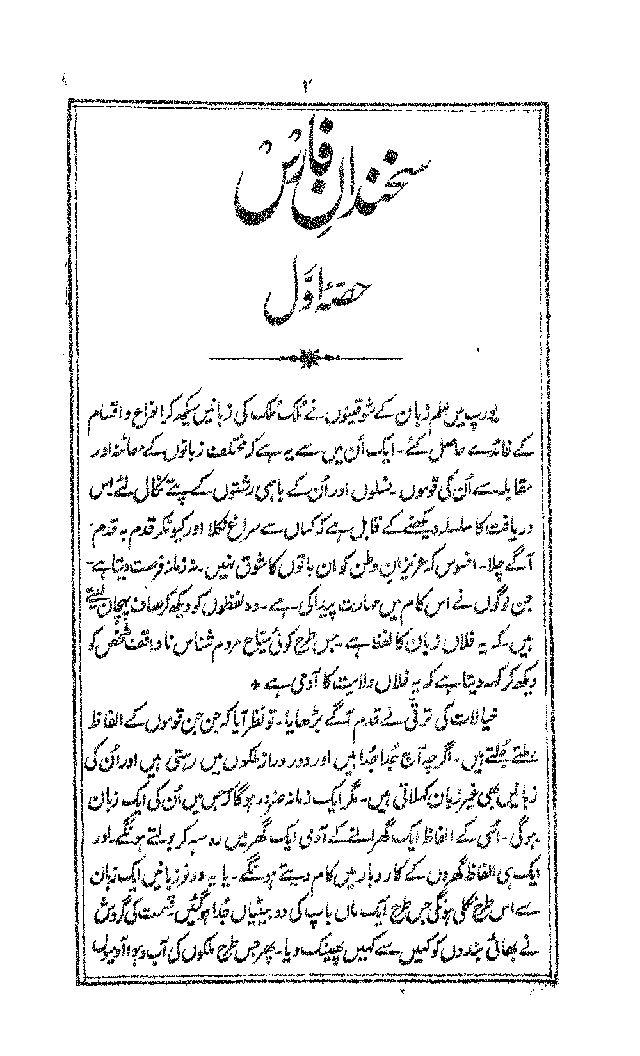 ۲
سخندانِ فارس
حصّۂ اوّل
یورپ میں علم زبان کے شوقینوں نے ملک ملک کی زبانیں سیکھ کر انواع و اقسام
کے فائدے حاصل کئے۔ ایک اُن میں سے یہ ہے کہ مختلف زبانوں کے معائنہ اور
مقابلہ سے اُن کی قوموں۔ نسلوں اور اُن کے باہمی رشتوں کے پتے نکال لئے اس
دریافت کا سلسلہ دیکھنے کے قابل ہے کہ کہاں سے سراغ نکلا اور کیونکر قدم بہ قدم
آگے چلا۔ افسوس کہ عزیزانِ وطن کو ان باتوں کا شوق نہیں۔ نہ زمانہ فرصت دیتا ہے۔
جن لوگوں نے اس کام میں مہارت پیدا کی ہے۔ وہ لفظوں کو دیکھ کر صاف پہچان لیتے
ہیں کہ یہ فلاں زبان کا لفظ ہے۔ جس طرح کوئی سیّاح مردم شناس ناواقف شخص کو
دیکھ کر کہہ دیتا ہے کہ یہ فلاں ولایت کا آدمی ہے *
خیالات کی ترقی نے قدم آگے بڑھایا۔ تو نظر آیا کہ جن جن قوموں کے الفاظ
ملتے جُلتے ہیں۔ اگرچہ آج جُدا جُدا ہیں اور دور دراز ملکوں میں رہتی ہیں اور اُن کی
زبانیں بھی غیر زبان کہلاتی ہیں۔ مگر ایک زمانہ ضرور ہوگا کہ جس میں اُن کی ایک زبان
ہوگی۔ اُسی کے الفاظ ایک گھرانے کے آدمی ایک گھر میں رہ سہہ کر بولتے ہونگے۔ اور
ایک ہی الفاظ گھروں کے کاروبار میں کام دیتے ہونگے۔ یا یہ دونو زبانیں ایک زبان
سے اس طرح نکلی ہونگی جس طرح ایک ماں باپ کی دو بیٹیاں جُدا ہو گئیں۔ قسمت کی گردش
نے بھائی بندوں کو کہیں سے کہیں پھینک دیا۔ پھر جس طرح ملکوں کی آب و ہوا